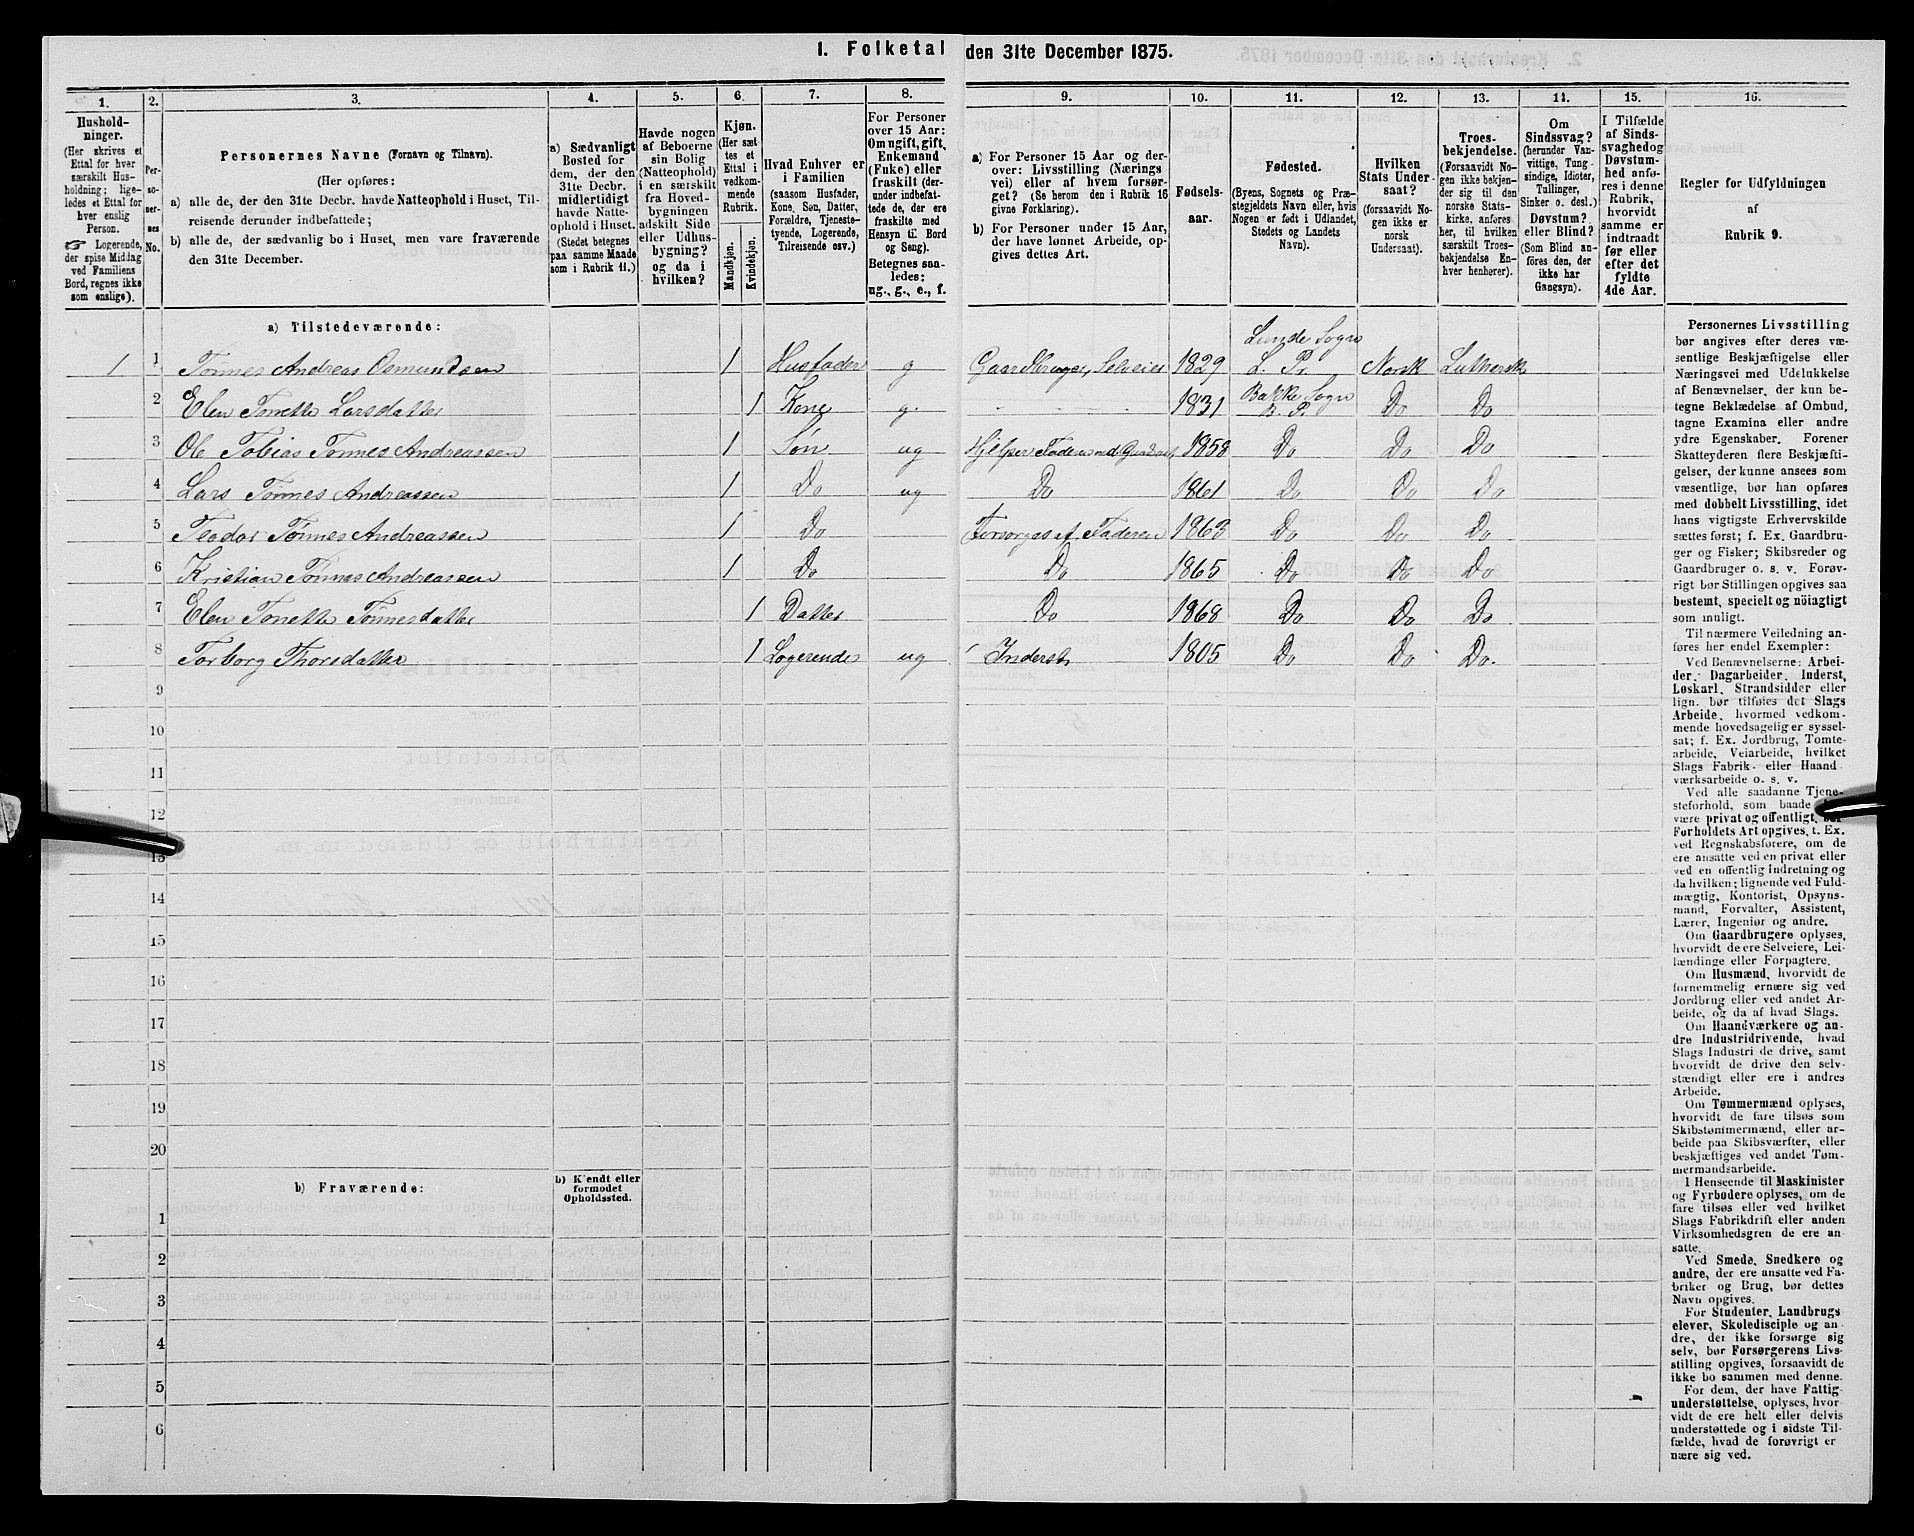 1. Folketal den 31te December 1875.
1.
Hushold-
ninger.
(Her skrives et
Ettal for hver
særskilt Hus-
holdning; lige-
ledes et Ettal for
hver enslig
Person.
☞ Logerende,
der spise Middag
ved Familiens
Bord, regnes ikke
som enslige).
2.
Per-
so-
ner-
nes
No.
3.
Personernes Navne (Fornavn og Tilnavn).
(Her opføres:
a) alle de, der den 31te Decbr. havde Natteophold i Huset, Til-
reisende derunder indbefattede;
b) alle de, der sædvanlig bo i Huset, men vare fraværende
den 31te December.
4.
a) Sædvanligt
Bosted for
dem, der den
31te Decbr.
midlertidigt
havde Natte-
ophold i Huset.
(Stedet betegnes
paa samme Maade
som i Rubrik 11.)
5.
Havde nogen
af Beboerne
sin Bolig
(Natteophold)
i en særskilt
fra Hoved-
bygningen
adskilt Side
eller Udhus-
bygning?
og da i
hvilken?
6.
Kjøn.
(Her sæt-
tes et
Ettal i
vedkom-
mende
Rubrik.
Mandkjøn.
Kvindekjøn.
7.
Hvad Enhver er
i Familien
(saasom Husfader,
Kone, Søn, Datter,
Forældre, Tjeneste-
tyende, Logerende,
Tilreisende osv.)
8.
For Personer
over 15 Aar:
Om ugift, gift,
Enkemand
(Enke) eller
fraskilt (der-
under indbefat-
tede de, der ere
fraskilte med
Hensyn til Bord
og Seng).
Betegnes saa-
ledes:
ug., g., e., f.
9.
a) For Personer 15 Aar og der-
over: Livsstilling (Nærings-
vei) eller af hvem forsør-
get? (Se herom den i Rubrik 16
givne Forklaring).
b) For Personer under 15 Aar,
der have lønnet Arbeide, op-
gives dettes Art.
10.
Fødsels-
aar.
11.
Fødested.
(Byens, Sognets og Præ-
stegjeldets Navn eller, hvis
Nogen er født i Udlandet,
Stedets og Landets
Navn).
12.
Hvilken
Stats Under-
saat?
(forsaavidt No-
gen ikke er
norsk
Undersaat).
13.
Troes-
bekjendelse.
(Forsaavidt No-
gen ikke bekjen-
der sig til den
norske Stats-
kirke, anføres
her, til hvilken
særskilt Troes-
bekjendelse En-
hver henhører).
14.
Om
Sindssvag?
(herunder Van-
vittige, Tung-
sindige, Idioter,
Tullinger,
Sinker o. desl.)
Døvstum?
eller Blind?
(Som Blind an-
føres den, der
ikke har
Gangsyn).
15.
I Tilfælde
af Sinds-
svaghed og
Døvstum-
hed anfø-
res i denne
Rubrik,
hvorvidt
samme er
indtraadt
før eller
efter det
fyldte
4de Aar.
16.
Regler for Udfyldningen
af
Rubrik 9.
a) Tilstedeværende:
1 1 Tønnes Andreas Osmundsen 1 Husfader g Gaardbruger, Selveier 1829 Lunde Sogn L. Pr. Norsk Luthersk
2 Elen Tonette Larsdatter 1 Kone g. 1831 Bakke Sogn B. P. Do Do
3 Ole Tobias Tønnes Andreassen 1 Søn ug Hjelper Faderen md Gaardst, 1858 Do Do Do
4 Lars Tønnes Andreassen 1 Do ug Do 1861 Do Do Do
5 Teodor Tønnes Andreassen 1 Do Forsørges af Faderen 1863 Do Do Do
6 Kristian Tønnes Andreassen 1 Do Do 1865 Do Do Do
7 Elen Tonette Tønnesdatter 1 Datter Do 1868 Do Do Do
8 Torborg Thorsdatter 1 Logerende ug Inderst 1805 Do Do Do.
9
10
11
12
13
14
15
16
17
18
19
20
b) Fraværende:
b) Kjendt eller
formodet
Opholdssted.
1
2
3
4
5
6
Personernes Livsstilling
bør angives efter deres væ-
sentlige Beskjæftigelse eller
Næringsvei med Udelukkelse
af Benævnelser, der kun be-
tegne Beklædelse af Ombud,
tagne Examina eller andre
ydre Egenskaber. Forener
Skatteyderen flere Beskjæfti-
gelser, der kunne ansees som
væsentlige, bør han opføres
med dobbelt Livsstilling, idet
hans vigtigste Erhvervskilde
sættes først; f. Ex. Gaardbru-
ger og Fisker; Skibsreder og
Gaardbruger o. s. v. Forøv-
rigt bør Stillingen opgives saa
bestemt, specielt og nöiagtigt
som muligt.
Til nærmere Veiledning an-
føres her endel Exempler:
Ved Benævnelserne: Arbei-
der, Dagarbeider, Inderst,
Løskarl, Strandsidder eller
lign. bør tilføies det Slags
Arbeide, hvormed vedkom-
mende hovedsagelig er syssel-
sat; f. Ex. Jordbrug, Tomte-
arbeide, Veiarbeide, hvilket
Slags Fabrik- eller Haand
værksarbeide o. s. v.
Ved alle saadanne Tjene-
steforhold, som baade
være privat og offentligt, bør
Forholdets Art opgives, t. Ex.
ved Regnskabsførere, om de
ere ansatte ved en privat eller
ved en offentlig Indretning og
da hvilken; lignende ved Fuld-
mægtig, Kontorist, Opsyns-
mand, Forvalter, Assistent,
Lærer, Ingeniør og andre.
Om Gaardbrugere oplyses,
hvorvidt de ere Selveiere, Lei-
lændinge eller Forpagtere.
Om Husmænd, hvorvidt de
fornemmelig ernære sig ved
Jordbrug eller ved andet Ar-
beide, og da af hvad Slags.
Om Haandværkere og an-
dre Industridrivende, hvad
Slags Industri de drive, samt
hvorvidt de drive den selv-
stændigt eller ere i andres
Arbeide.
Om Tømmermænd oplyses,
hvorvidt de fare tilsøs som
Skibstømmermænd, eller ar-
beide paa Skibsværfter, eller
beskjæftiges ved andet Tøm-
mermandsarbeide.
I Henseende til Maskinister
og Fyrbødere oplyses, om de
fare tilsøs eller ved hvilket
Slags Fabrikdrift eller anden
Virksomhedsgren de ere an-
satte.
Ved Smede, Snedkere og
andre, der ere ansatte ved Fa-
briker og Brug, bør dettes
Navn opgives.
For Studenter, Landbrugs
elever, Skoledisciple og an-
dre, der ikke forsørge sig
selv, bør Forsørgerens Livs-
stilling opgives, forsaavidt de
ikke bo sammen med denne.
For dem, der have Fattig-
understøttelse, oplyses, hvor-
vidt de ere helt eller delvis
understøttede og i sidste Til-
fælde, hvad de forøvrigt er
nære sig ved.